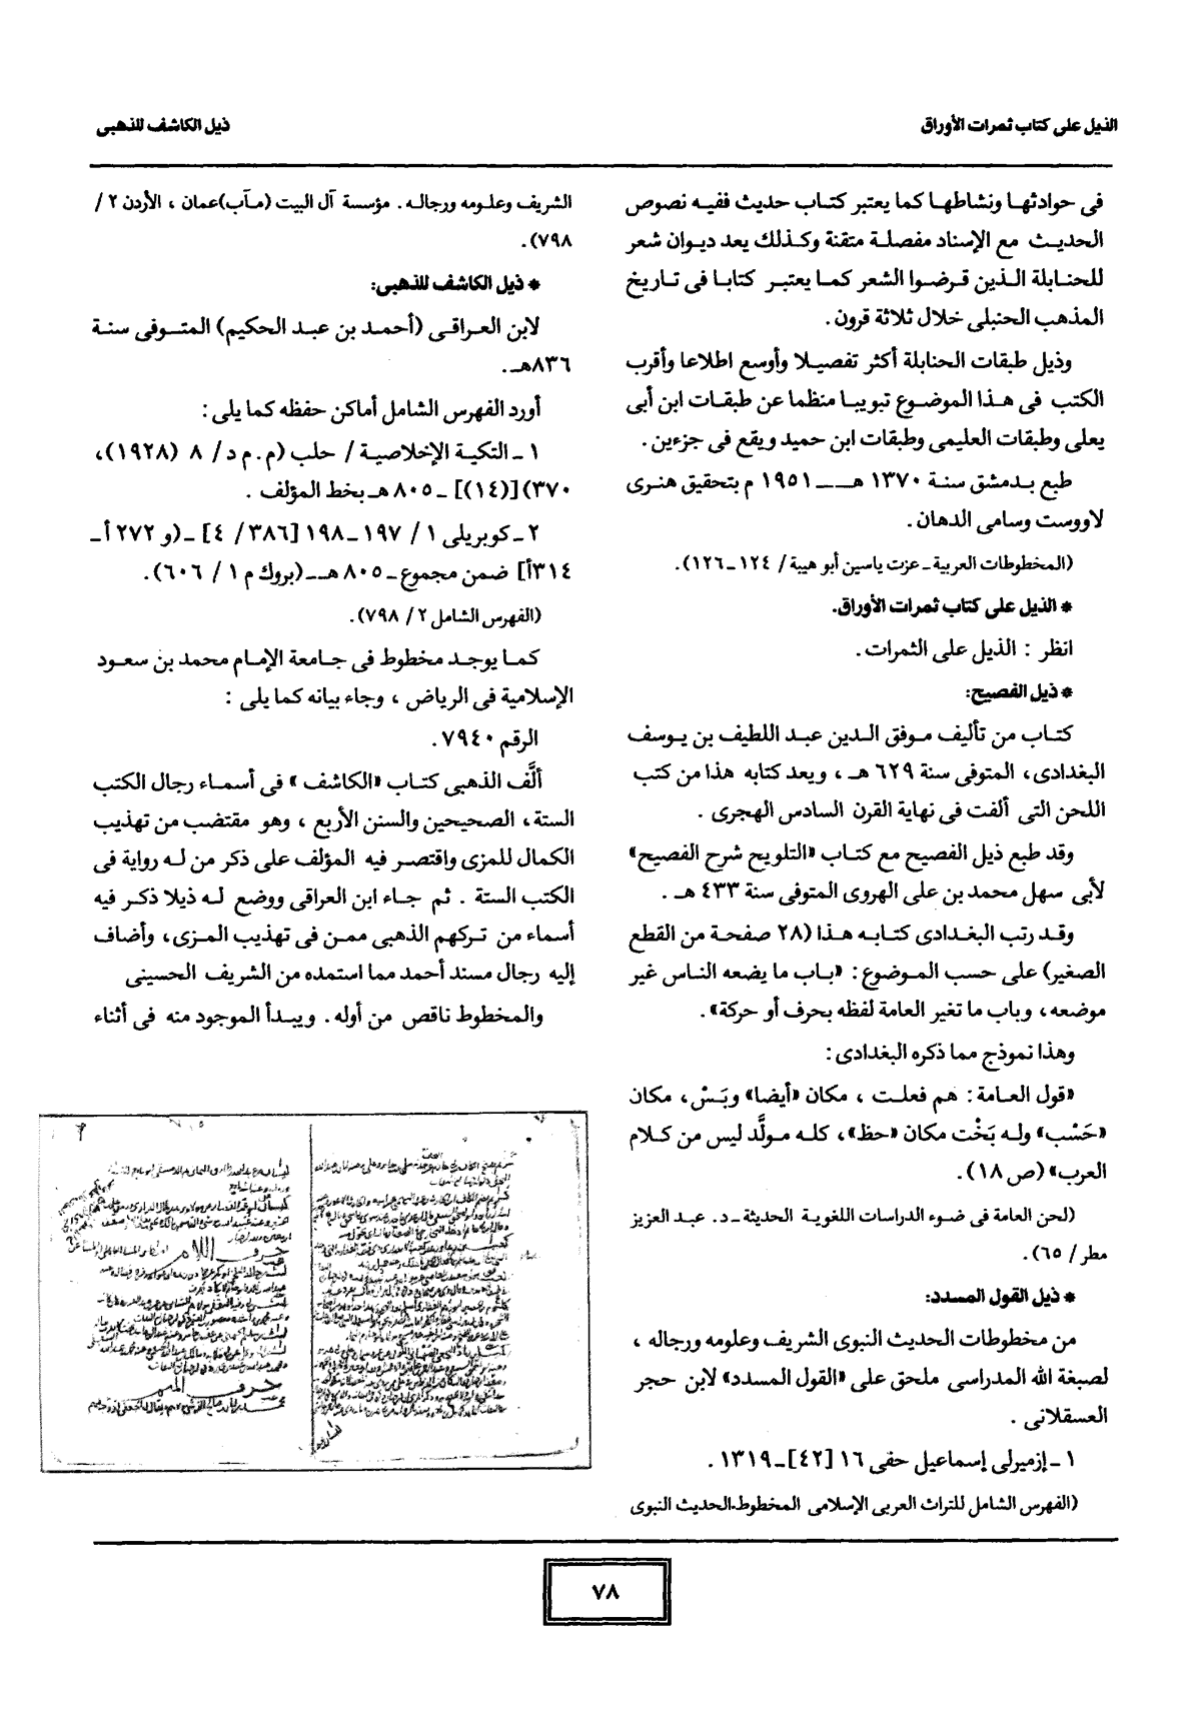 الذيل على كتاب ثمرات الأوراق
ذيل الكاشف للذهبى
فى حوادثها ونشاطها كما يعتبر كتاب حديث ففيه نصوص
الحديث مع الإسناد مفصلة متقنة وكذلك يعد ديوان شعر
للحنابلة الذين قرضوا الشعر كما يعتبر كتابا فى تاريخ
المذهب الحنبلى خلال ثلاثة قرون.
وذيل طبقات الحنابلة أكثر تفصيلا وأوسع اطلاعا وأقرب
الكتب فى هذا الموضوع تبويبا منظما عن طبقات ابن أبى
يعلى وطبقات العليمى وطبقات ابن حميد ويقع فى جزءين.
طبع بدمشق سنة ١٣٧٠ هـ ـ ١٩٥١ م بتحقيق هنرى
لاووست وسامى الدهان.
(المخطوطات العربية ـ عزت ياسين أبو هيبة / ١٢٤ ـ ١٢٦).
* الذيل على كتاب ثمرات الأوراق.
انظر : الذيل على الثمرات.
* ذيل الفصيح:
كتاب من تأليف موفق الدين عبد اللطيف بن يوسف
البغدادى، المتوفى سنة ٦٢٩ هـ ، ويعد كتابه هذا من كتب
اللحن التى ألفت فى نهاية القرن السادس الهجرى .
وقد طبع ذيل الفصيح مع كتاب «التلويح شرح الفصيح»
لأبى سهل محمد بن على الهروى المتوفى سنة ٤٣٣ هـ .
وقد رتب البغدادى كتابه هذا (٢٨ صفحة من القطع
الصغير) على حسب الموضوع : «باب ما يضعه الناس غير
موضعه، وباب ما تغير العامة لفظه بحرف أو حركة» .
وهذا نموذج مما ذكره البغدادى :
«قول العامة : هم فعلت ، مكان «أيضا» وبَسْ، مكان
«حَسْب» وله بَخْت مكان «حظ»، كله مولَّد ليس من كلام
العرب» (ص ١٨).
(لحن العامة فى ضوء الدراسات اللغوية الحديثة ـ د. عبد العزيز
مطر / ٦٥) .
* ذيل القول المسدد:
من مخطوطات الحديث النبوى الشريف وعلومه ورجاله ،
لصبغة الله المدراسى ملحق على «القول المسدد» لابن حجر
العسقلانى .
١ ـ إزميرلى إسماعيل حقى ١٦ [٤٢] ـ ١٣١٩ .
(الفهرس الشامل للتراث العربى الإسلامى المخطوط.الحديث النبوى
الشريف وعلومه ورجاله. مؤسسة آل البيت (مآب)عمان ، الأردن ٢ /
٧٩٨).
* ذيل الكاشف للذهبى:
لابن العراقى (أحمد بن عبد الحكيم) المتوفى سنة
٨٣٦هـ.
أورد الفهرس الشامل أماكن حفظه كما يلى :
١ ـ التكية الإخلاصية / حلب (م.م د/ ٨ (١٩٢٨)،
٣٧٠) [(١٤)] ـ ٨٠٥ هـ بخط المؤلف .
٢ ـ كوبريلى ١ / ١٩٧ ـ ١٩٨ [٣٨٦/ ٤] ـ (و ٢٧٢ أ ـ
٣١٤أ] ضمن مجموع ـ ٨٠٥ هـ ـ (بروك م ١ / ٦٠٦).
(الفهرس الشامل ٢ / ٧٩٨).
كما يوجد مخطوط فى جامعة الإمام محمد بن سعود
الإسلامية فى الرياض ، وجاء بيانه كما يلى :
الرقم ٧٩٤٠ .
ألَّف الذهبى كتاب «الكاشف» فى أسماء رجال الكتب
الستة، الصحيحين والسنن الأربع ، وهو مقتضب من تهذيب
الكمال للمزى واقتصر فيه المؤلف على ذكر من له رواية فى
الكتب الستة . ثم جاء ابن العراقى ووضع له ذيلا ذكر فيه
أسماء من تركهم الذهبى ممن فى تهذيب المزى، وأضاف
إليه رجال مسند أحمد مما استمده من الشريف الحسينى
والمخطوط ناقص من أوله. ويبدأ الموجود منه فى أثناء
حرف اللام
حرف الميم
٧٨